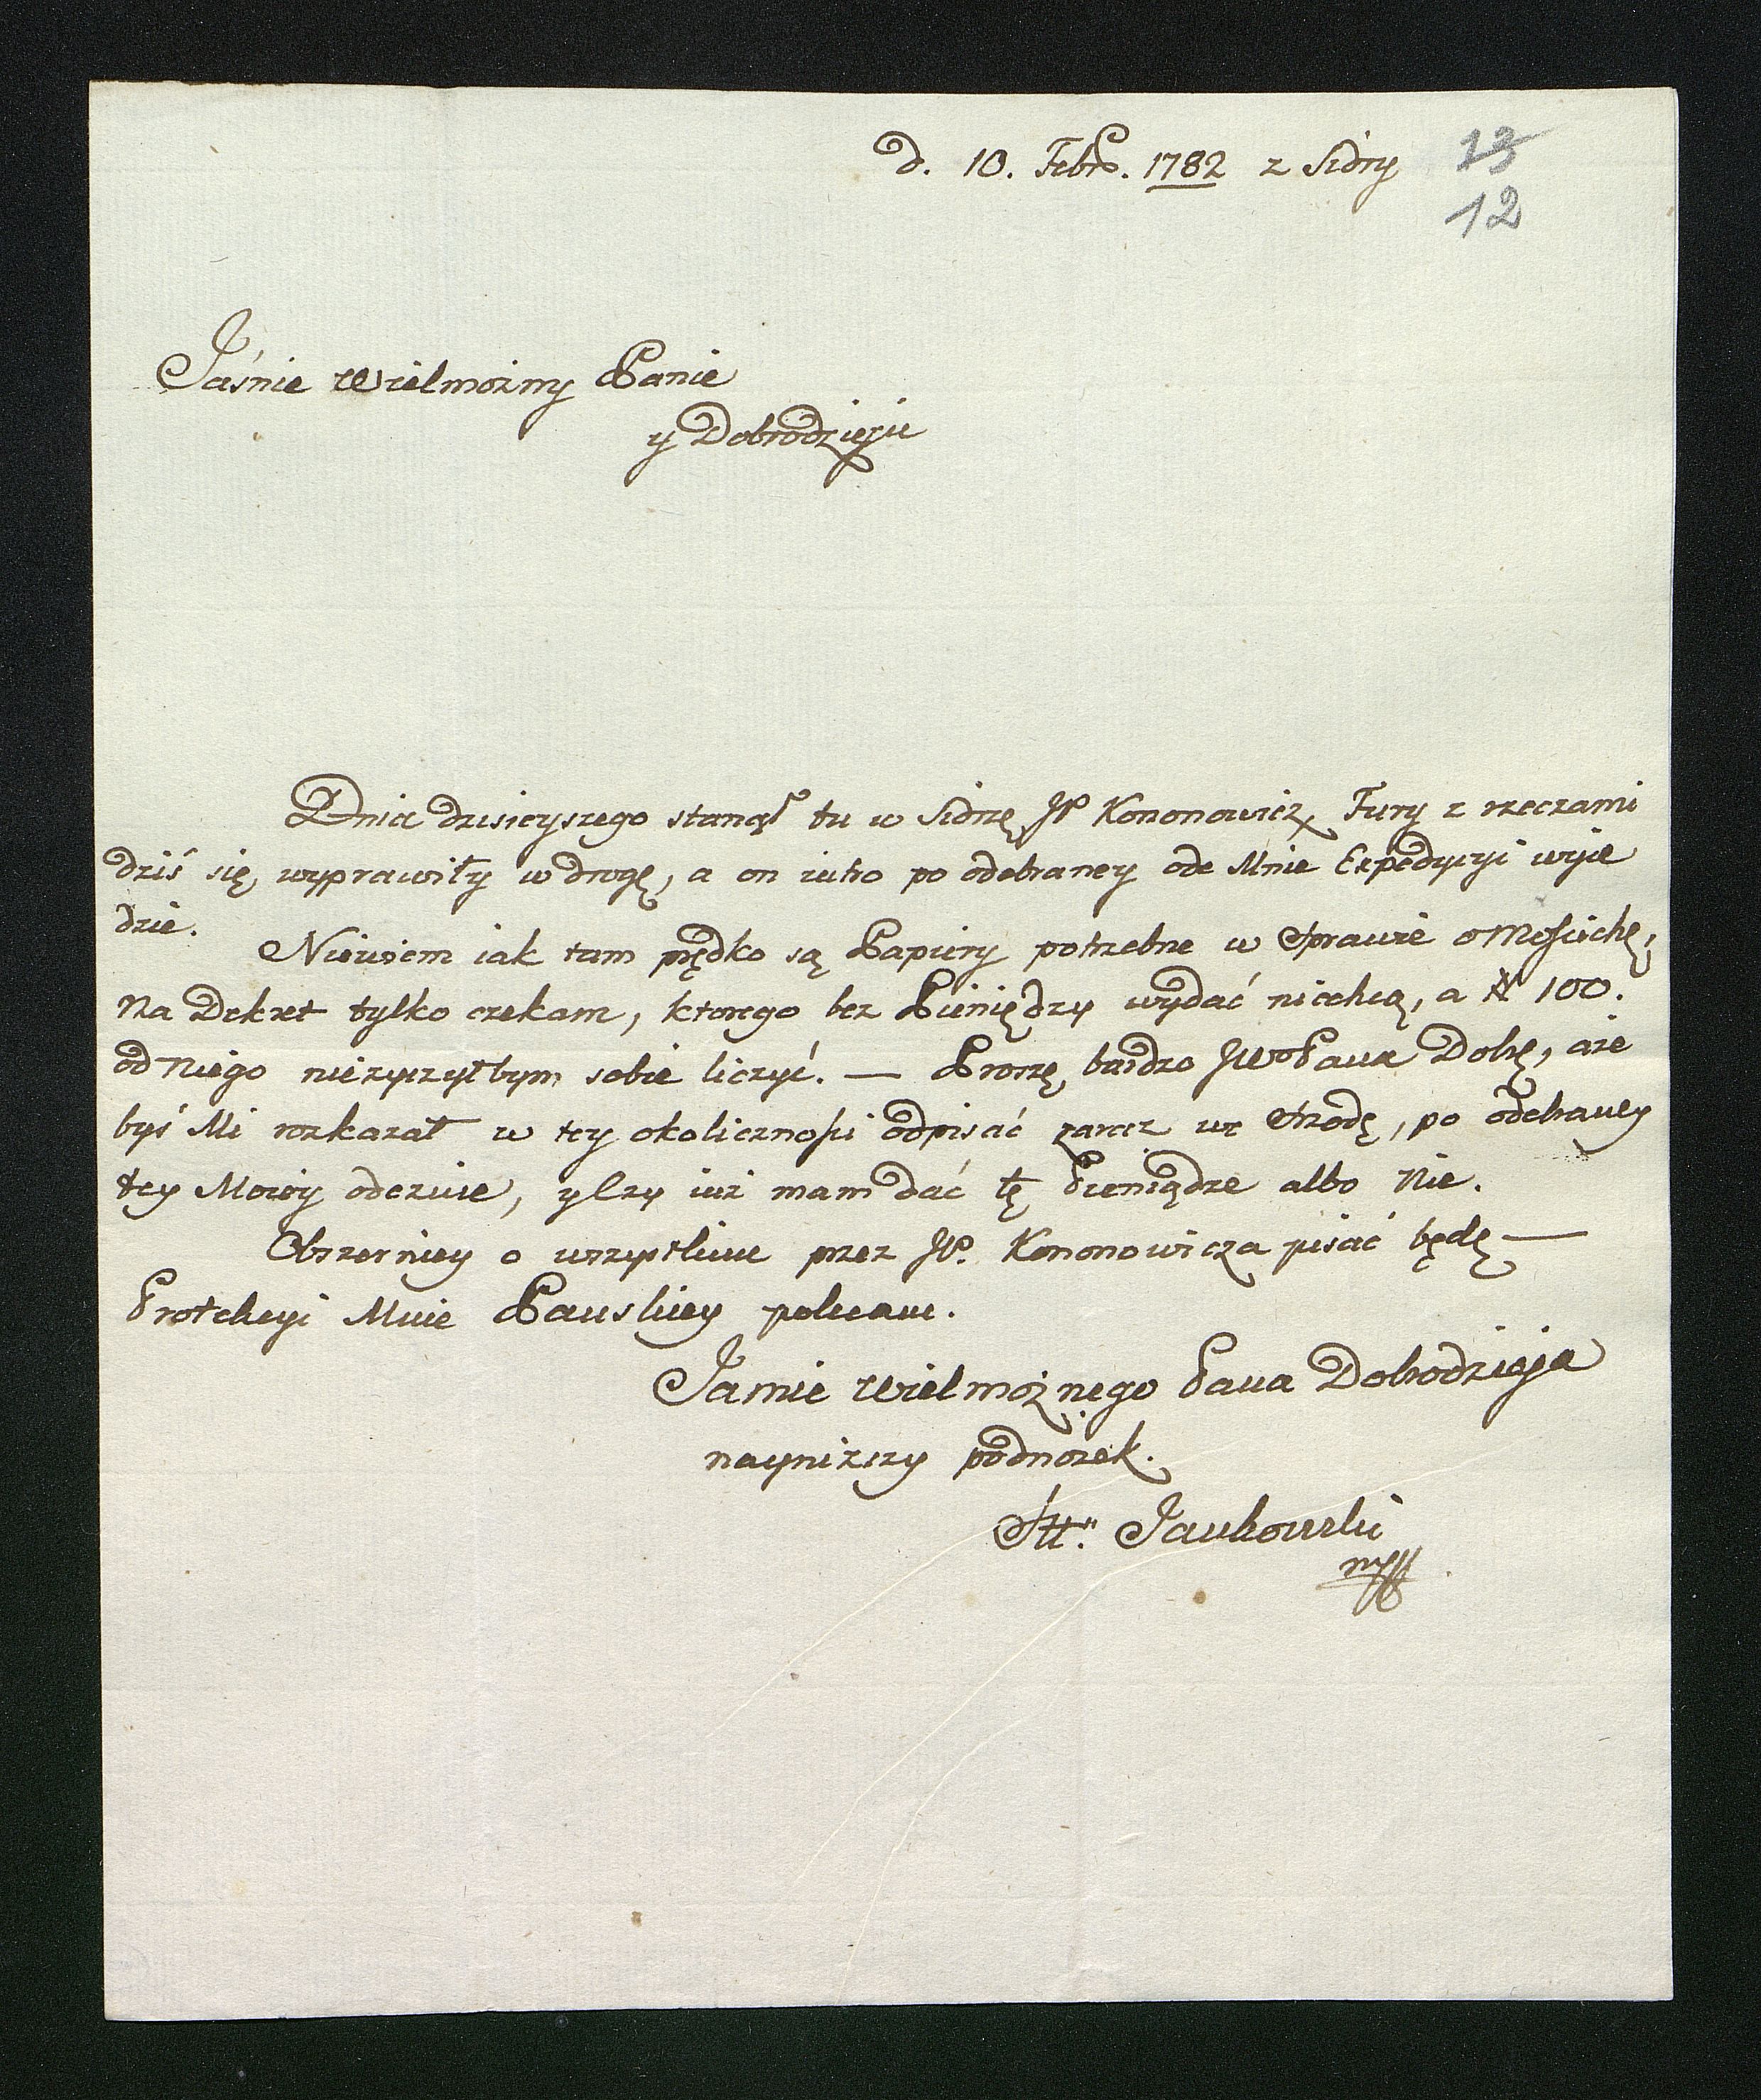 d. 10. Febr. 1782 z Sidry
13
12
Jaśnie Wielmożny Panie
y Dobrodzieju
Dnia dzisieyszego stanął tu w Sidrzę JP Kononowicz, Fury z rzeczami
dziś się wyprawiły w drogę, a on iutro po odebraney ode Mnie Expedycyi wyie
dzie.
Niewiem iak tam prędko są Papiery potrzebne w Sprawie o Mościchę,
Na Dekret tylko czekam, ktorego bez Pieniędzy wydać niechcą, a # 100.
od Niego nieżyczyłbym sobie liczyć. — Proszę bardzo JWo Pana Dobę, aże
byś Mi rozkazał w tey okoliczności odpisać zaraz we Srzodę, po odebraney
tey Moiey odezwie, yesli iuż mam dać tę Pieniądze albo Nie.
Obszerniey o wszystkim przez JP. Kononowicza pisać będę —
Protekcyi Mnie Pańskiey polecam.
Jaśnie Wielmożnego Pana Dobrodzieja
nayniższy podnożek.
Jankowski
mp